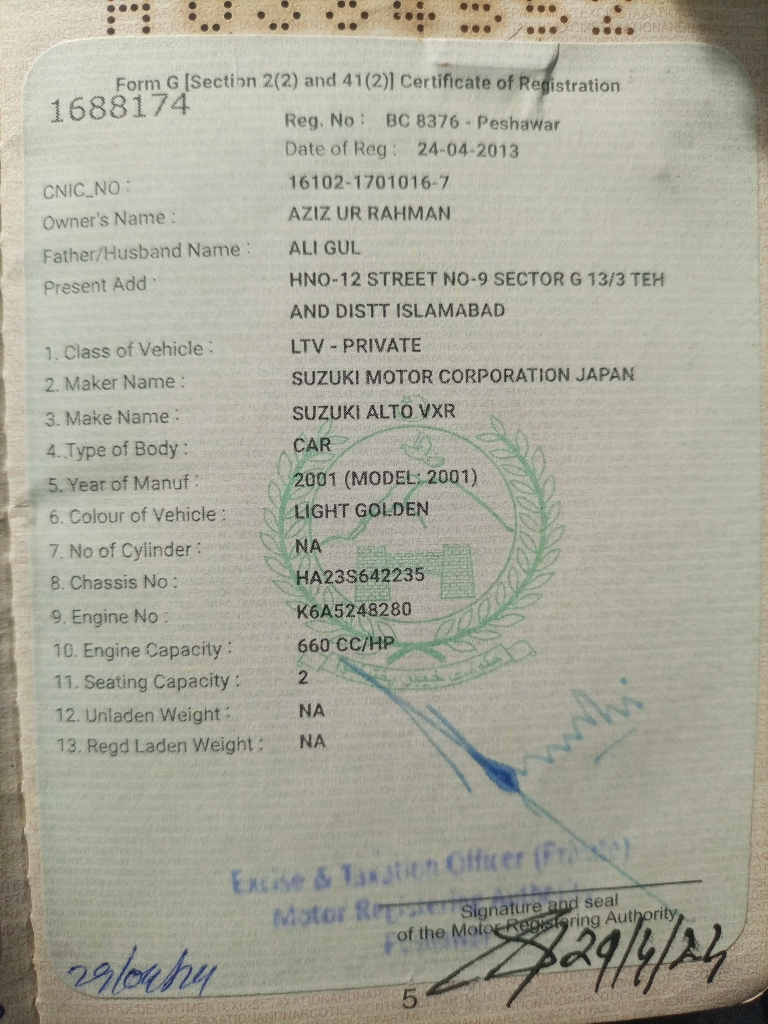 Form G [Section 2(2) and 41(2)] Certificate of Registration
1688174
Reg. No : BC 8376 - Peshawar
Date of Reg : 24-04-2013
CNIC_NO : 16102-1701016-7
Owner's Name : AZIZ UR RAHMAN
Father/Husband Name : ALI GUL
Present Add : HNO-12 STREET NO-9 SECTOR G 13/3 TEH
AND DISTT ISLAMABAD
1. Class of Vehicle : LTV - PRIVATE
2. Maker Name : SUZUKI MOTOR CORPORATION JAPAN
3. Make Name : SUZUKI ALTO VXR
4. Type of Body : CAR
5. Year of Manuf : 2001 (MODEL: 2001)
6. Colour of Vehicle : LIGHT GOLDEN
7. No of Cylinder : NA
8. Chassis No : HA23S642235
9. Engine No : K6A5248280
10. Engine Capacity : 660 CC/HP
11. Seating Capacity : 2
12. Unladen Weight : NA
13. Regd Laden Weight : NA
Excise & Taxation Officer
Motor Registering Authority
Signature and seal
of the Motor Registering Authority
29/4/24
29/04/24
5